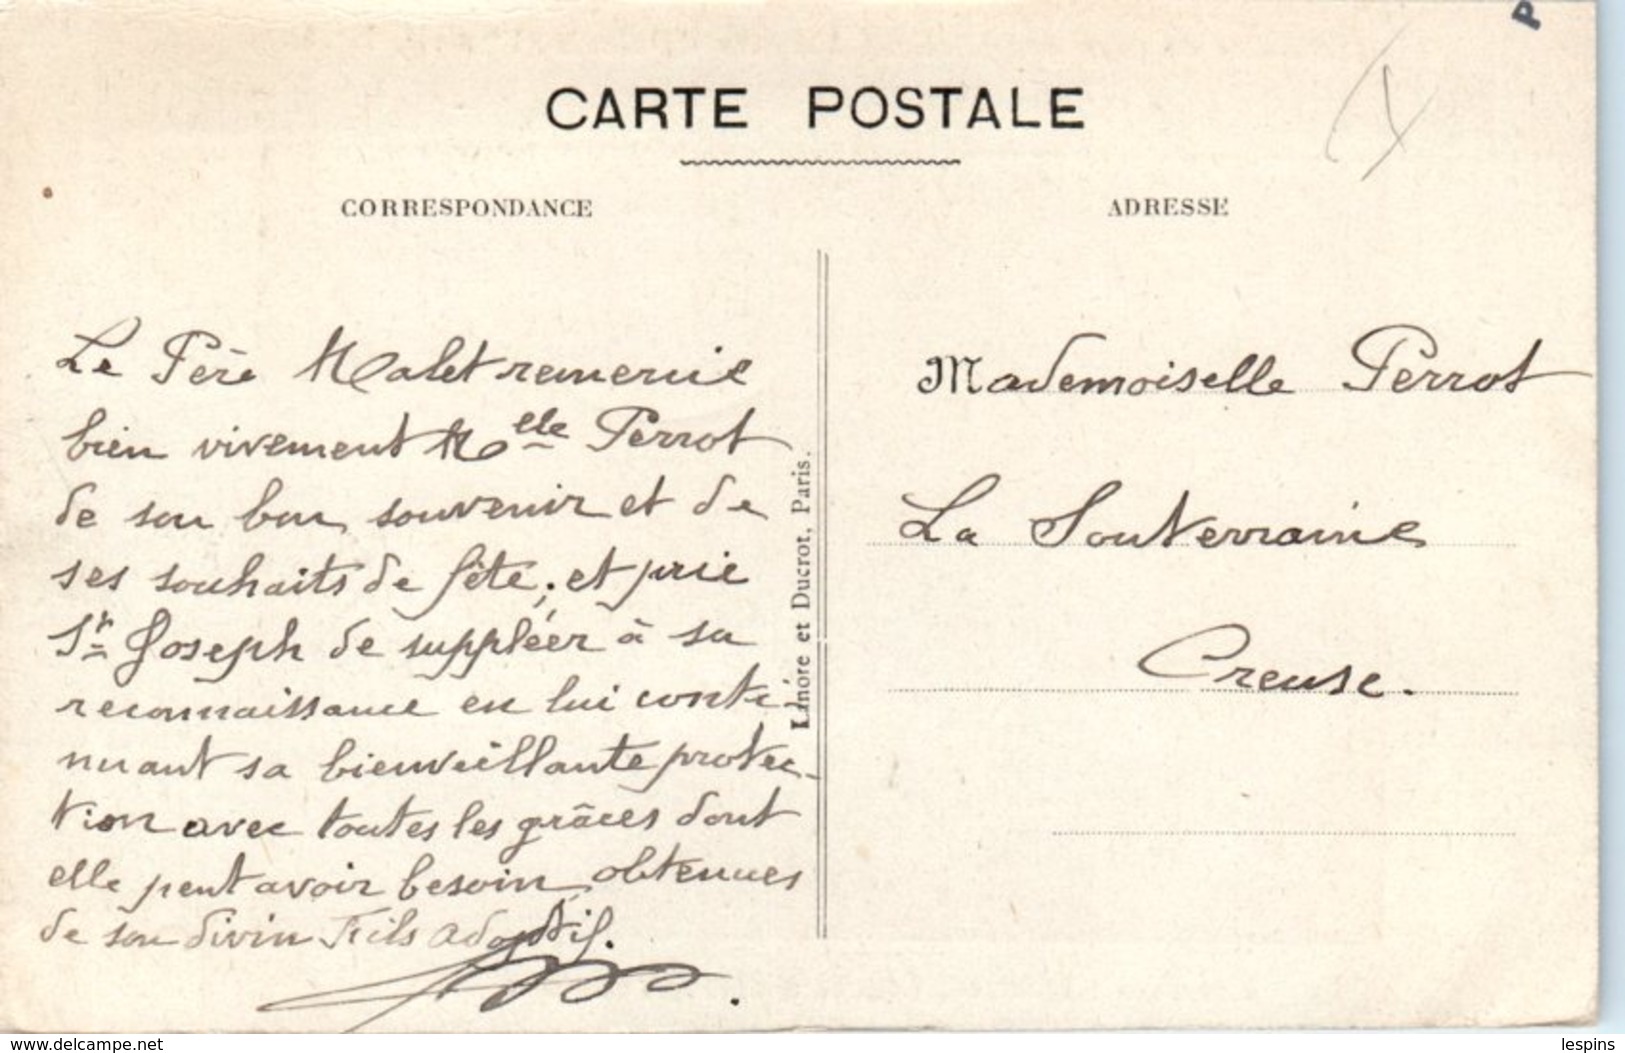 P
CARTE POSTALE
CORRESPONDANCE
ADRESSE
Le Père Malet remercie
bien vivement Melle Perrot
de son bon souvenir et de
ses souhaits de fête; et prie
St Joseph de suppléer à sa
reconnaissance en lui conti-
nuant sa bienveillante protec-
tion avec toutes les grâces dont
elle peut avoir besoin, obtenues
de son divin Fils adoptif.
Limore et Ducrot, Paris.
Mademoiselle Perrot
La Souterraine
Creuse.
www.delcampe.net
lespins